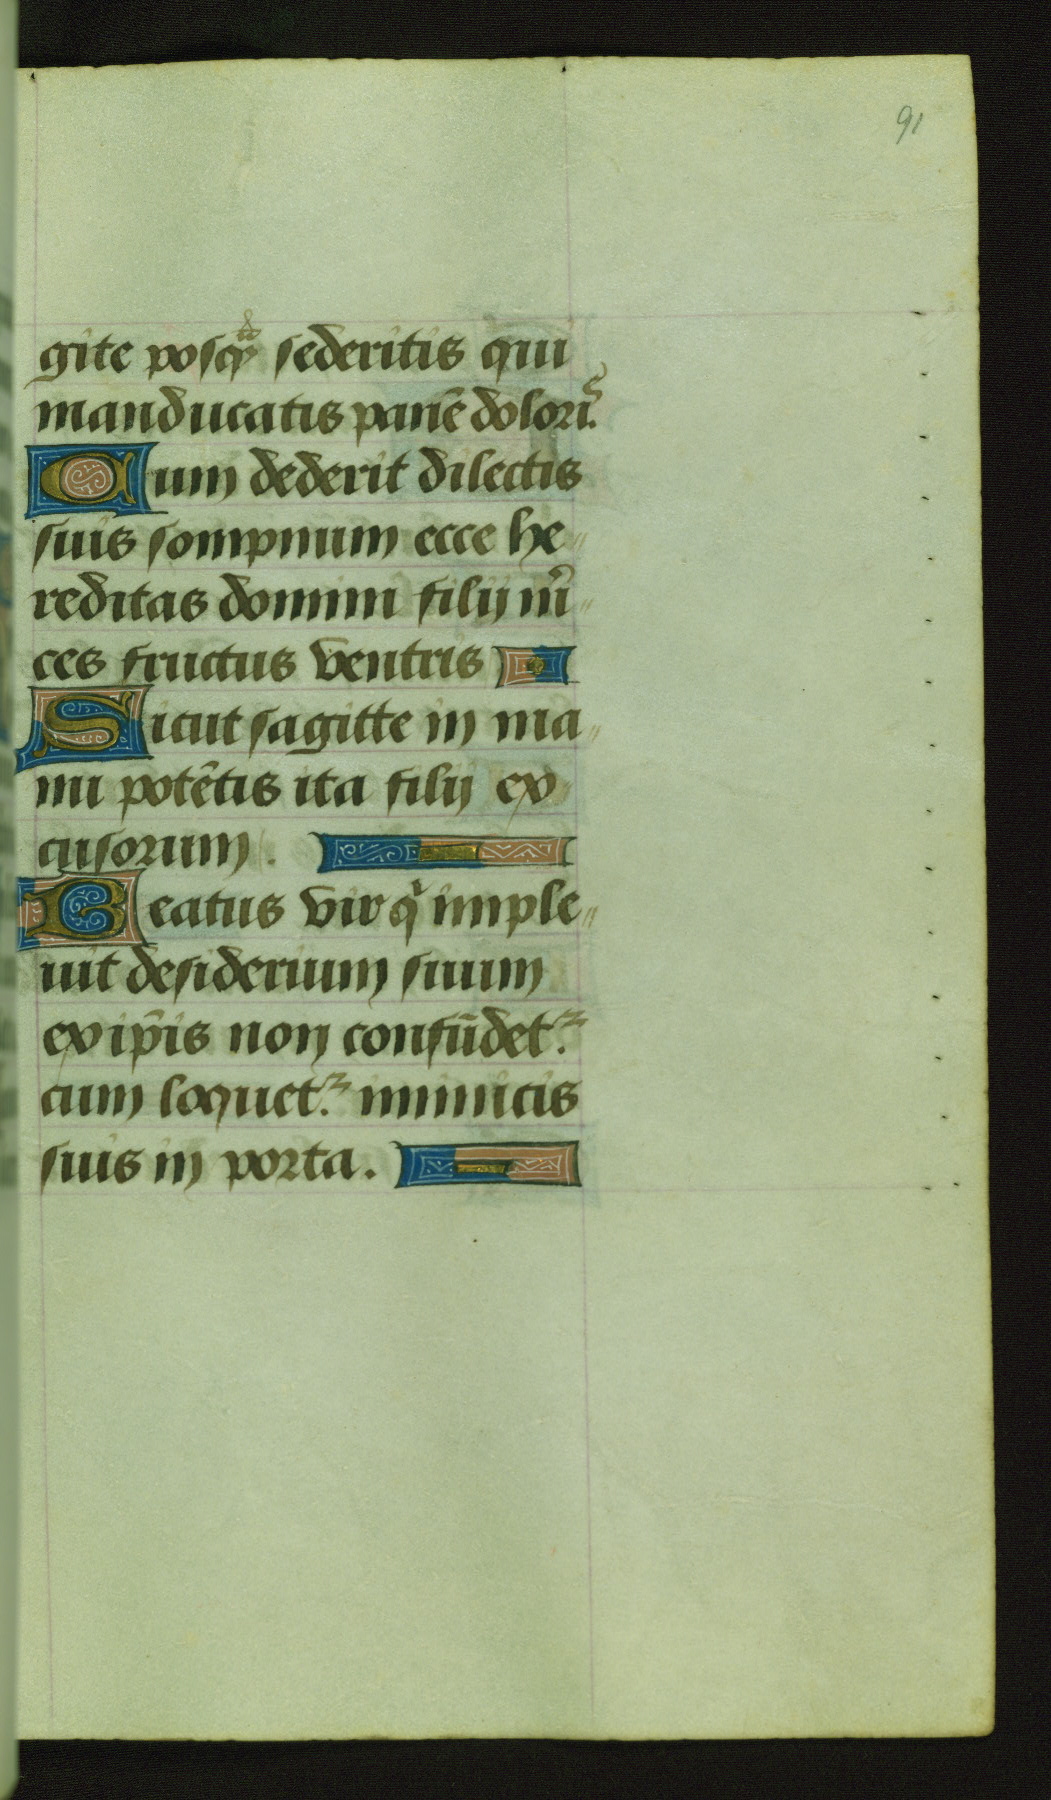 91
gite posqᷓ sederitis qui
manducatis panē doloriꝰ.
Cum dederit dilectis
suis sompnum ecce he〃
reditas domini filij m̄〃
ces fructus ventris
Sicut sagitte in ma〃
nu potētis ita filij ex
cusorum.
Beatus vir qͥ imple〃
uit desiderium suum
ex ip̄is non confūdetᷣ.
cum loquetᷣ. inimicis
suis in porta.